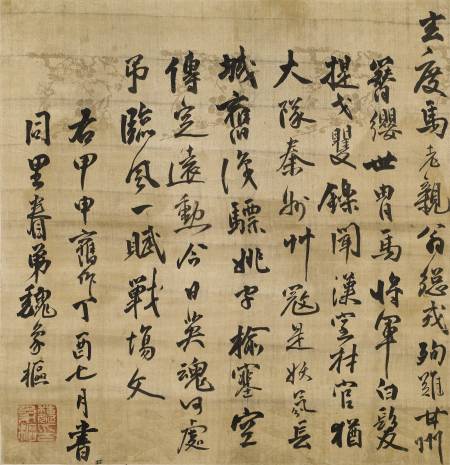 玄度馬老親翁總戎殉難甘州
簪纓世胄馬將軍白髮
提戈矍鑠聞漢室材官猶
大隊秦州艸寇是妖氛長
城舊驃姚字榆塞空
傳定遠勳今日英魂何處
吊臨風一賦戰場文
右甲申舊作丁酉七月書
同里眷弟魏象樞